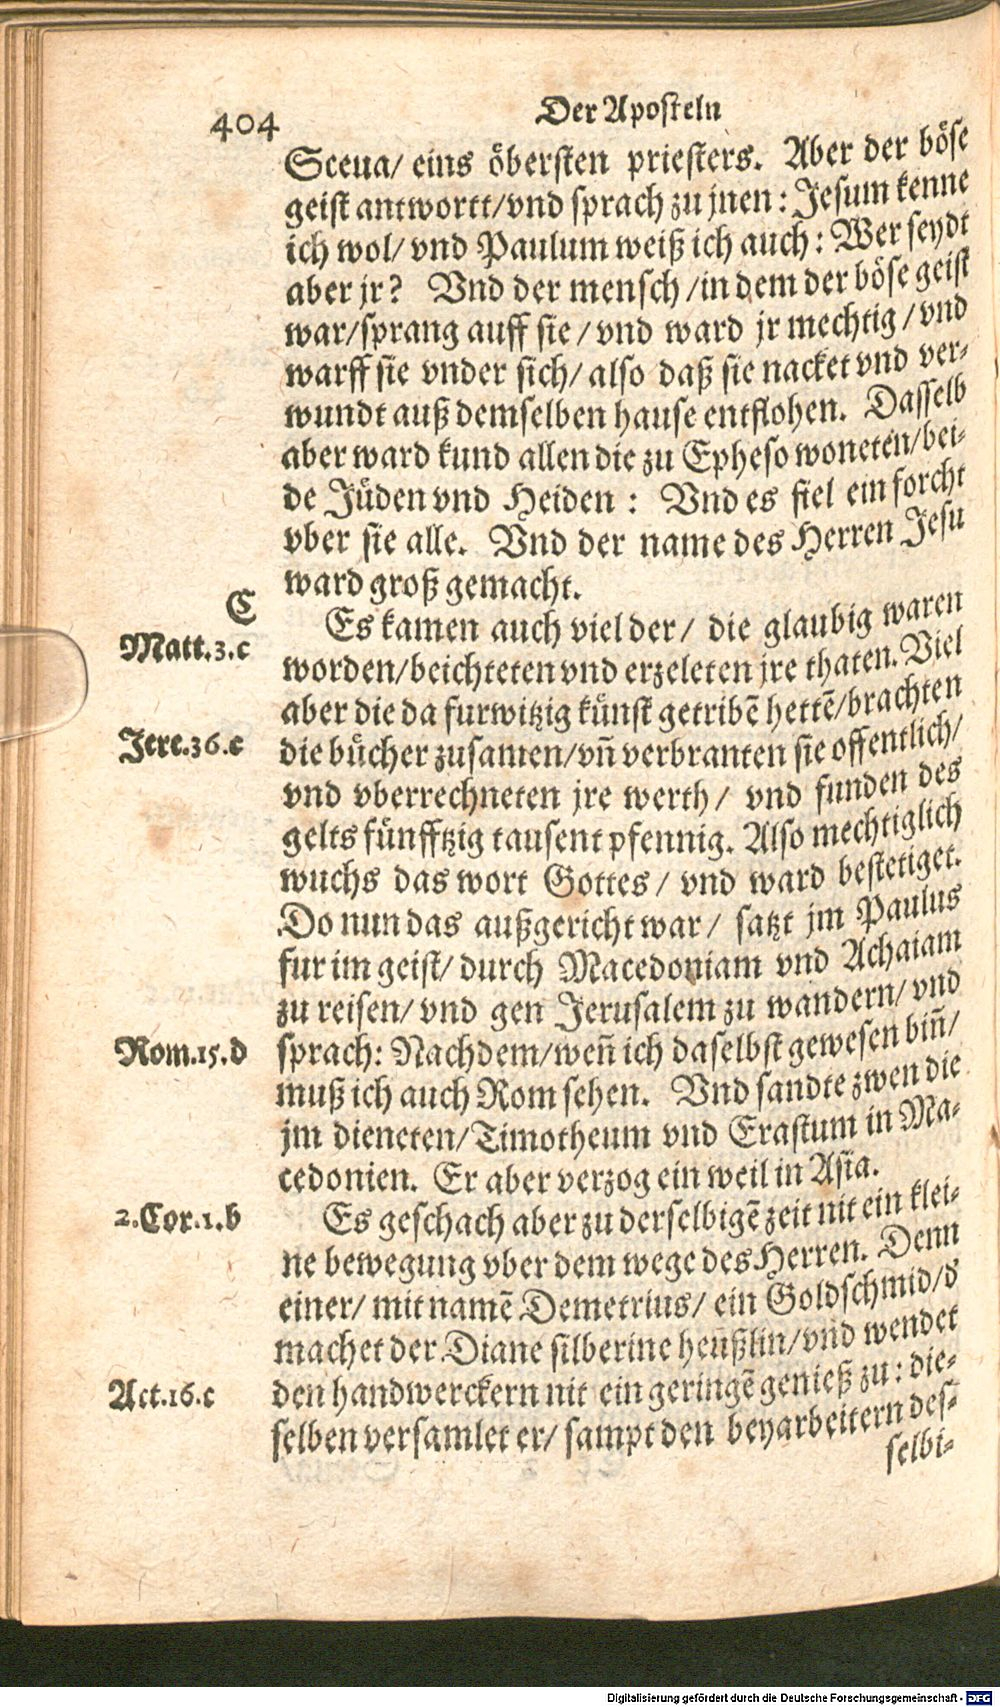 404
Der Aposteln
Sceua/ eins öbersten priesters. Aber der böse
geist antwortt/vnd sprach zu jnen: Jesum kenne
ich wol/ vnd Paulum weiß ich auch: Wer seydt
aber jr? Vnd der mensch /in dem der böse geist
war/sprang auff sie / vnd ward jr mechtig / vnd
warff sie vnder sich/ also daß sie nacket vnd ver-
wundt auß demselben hause entflohen. Dasselb
aber ward kund allen die zu Epheso woneten/bei-
de Jüden vnd Heiden: Vnd es fiel ein forcht
vber sie alle. Vnd der name des Herren Jesu
ward groß gemacht.
C
Es kamen auch viel der/ die glaubig waren
Matt.3.c
worden/beichteten vnd erzeleten jre thaten. Viel
aber die da furwitzig künst getribē hettē/brachten
Jere.36.e
die bücher zusamen/vñ verbranten sie offentlich/
vnd vberrechneten jre werth/ vnd funden des
gelts fünfftzig tausent pfennig. Also mechtiglich
wuchs das wort Gottes/ vnd ward bestetiget.
Do nun das außgericht war/ satzt jm Paulus
fur im geist/ durch Macedoniam vnd Achaiam
zu reisen/ vnd gen Jerusalem zu wandern/ vnd
Rom.15.d
sprach: Nachdem/weñ ich daselbst gewesen biñ/
muß ich auch Rom sehen. Vnd sandte zwen die
jm dieneten/Timotheum vnd Erastum in Ma-
cedonien. Er aber verzog ein weil in Asia.
2.Cor.1.b
Es geschach aber zu derselbigē zeit nit ein klei-
ne bewegung vber dem wege des Herren. Denn
einer/ mit namē Demetrius/ ein Goldschmid/d
machet der Diane silberine heüßlin/vnd wendet
Act.16.c
den handwerckern nit ein geringē genieß zu: die-
selben versamlet er/ sampt den beyarbeitern des-
selbi-
Digitalisierung gefördert durch die Deutsche Forschungsgemeinschaft - DFG